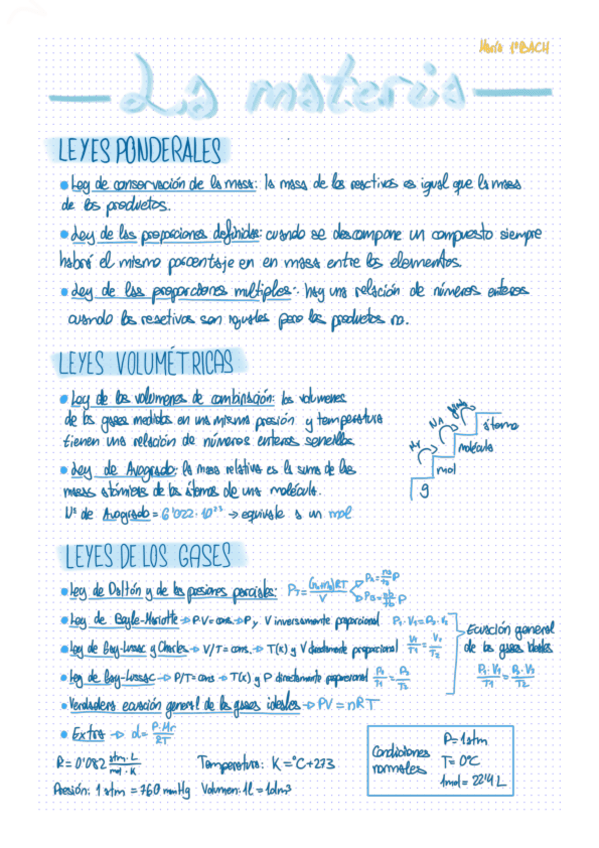 María 1ºBACH
La materia
LEYES PONDERALES
• Ley de conservación de la masa: la masa de los reactivos es igual que la masa
de los productos.
• Ley de las proporciones definidas: cuando se descompone un compuesto siempre
habrá el mismo porcentaje en en masa entre los elementos.
• Ley de las proporciones multiples: hay una relación de números enteros
cuando los reactivos son iguales pero los productos no.
LEYES VOLUMÉTRICAS
• Ley de los volumenes de combinación: los volumenes
de los gases medidos en una misma presión y temperatura
tienen una relación de números enteros sencillos.
• Ley de Avogrado: la masa relativa es la suma de las
masas atómicas de los átomos de una molécula.
Nº de Avogrado = 6'022·10²³ → equivale a un mol
g
Mr
mol
NA
molécula
átomo
LEYES DE LOS GASES
• Ley de Daltón y de las presiones parciales: P_T = (n_A+n_B)RT / V
• Ley de Boyle-Mariotte → P·V = cons. → P y V inversamente proporcional P₁·V₁ = P₂·V₂
• Ley de Gay-Lussac y Charles → V/T = cons. → T(K) y V directamente proporcional V₁/T₁ = V₂/T₂
• Ley de Gay-Lussac → P/T = cons → T(K) y P directamente proporcional P₁/T₁ = P₂/T₂
Ecuación general
de los gases ideales
P₁·V₁/T₁ = P₂·V₂/T₂
• Verdadera ecuación general de los gases ideales → PV = nRT
• Extra → d = P·Mr / RT
R = 0'082 atm·L / mol·K
Temperatura: K = ºC + 273
Presión: 1 atm = 760 mmHg Volumen: 1L = 1dm³
Condiciones
normales
P = 1 atm
T = 0ºC
1mol = 22'4 L